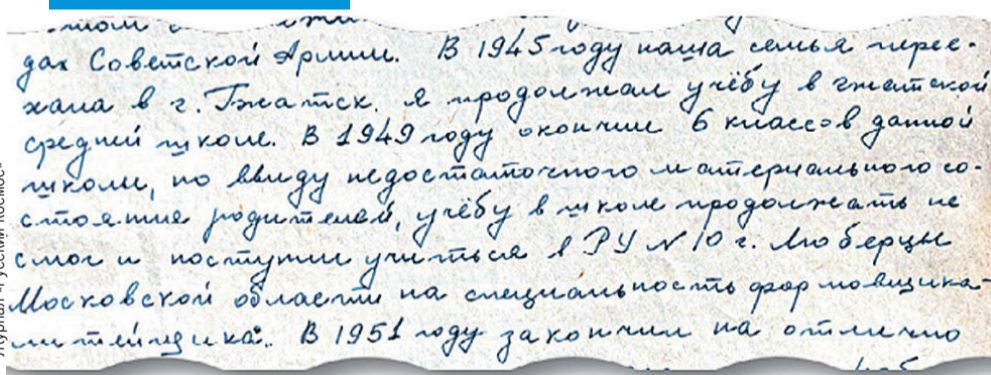 дах Советской Армии. В 1945 году наша семья перее-
хала в г. Гжатск. Я продолжал учёбу в гжатской
средней школе. В 1949 году окончил 6 классов данной
школы, но ввиду недостаточного материального со-
стояния родителей, учёбу в школе продолжать не
смог и поступил учиться в РУ №10 г. Люберцы
Московской области на специальность формовщика-
литейщика. В 1951 году закончил на отлично
Журнал «Русский космос»